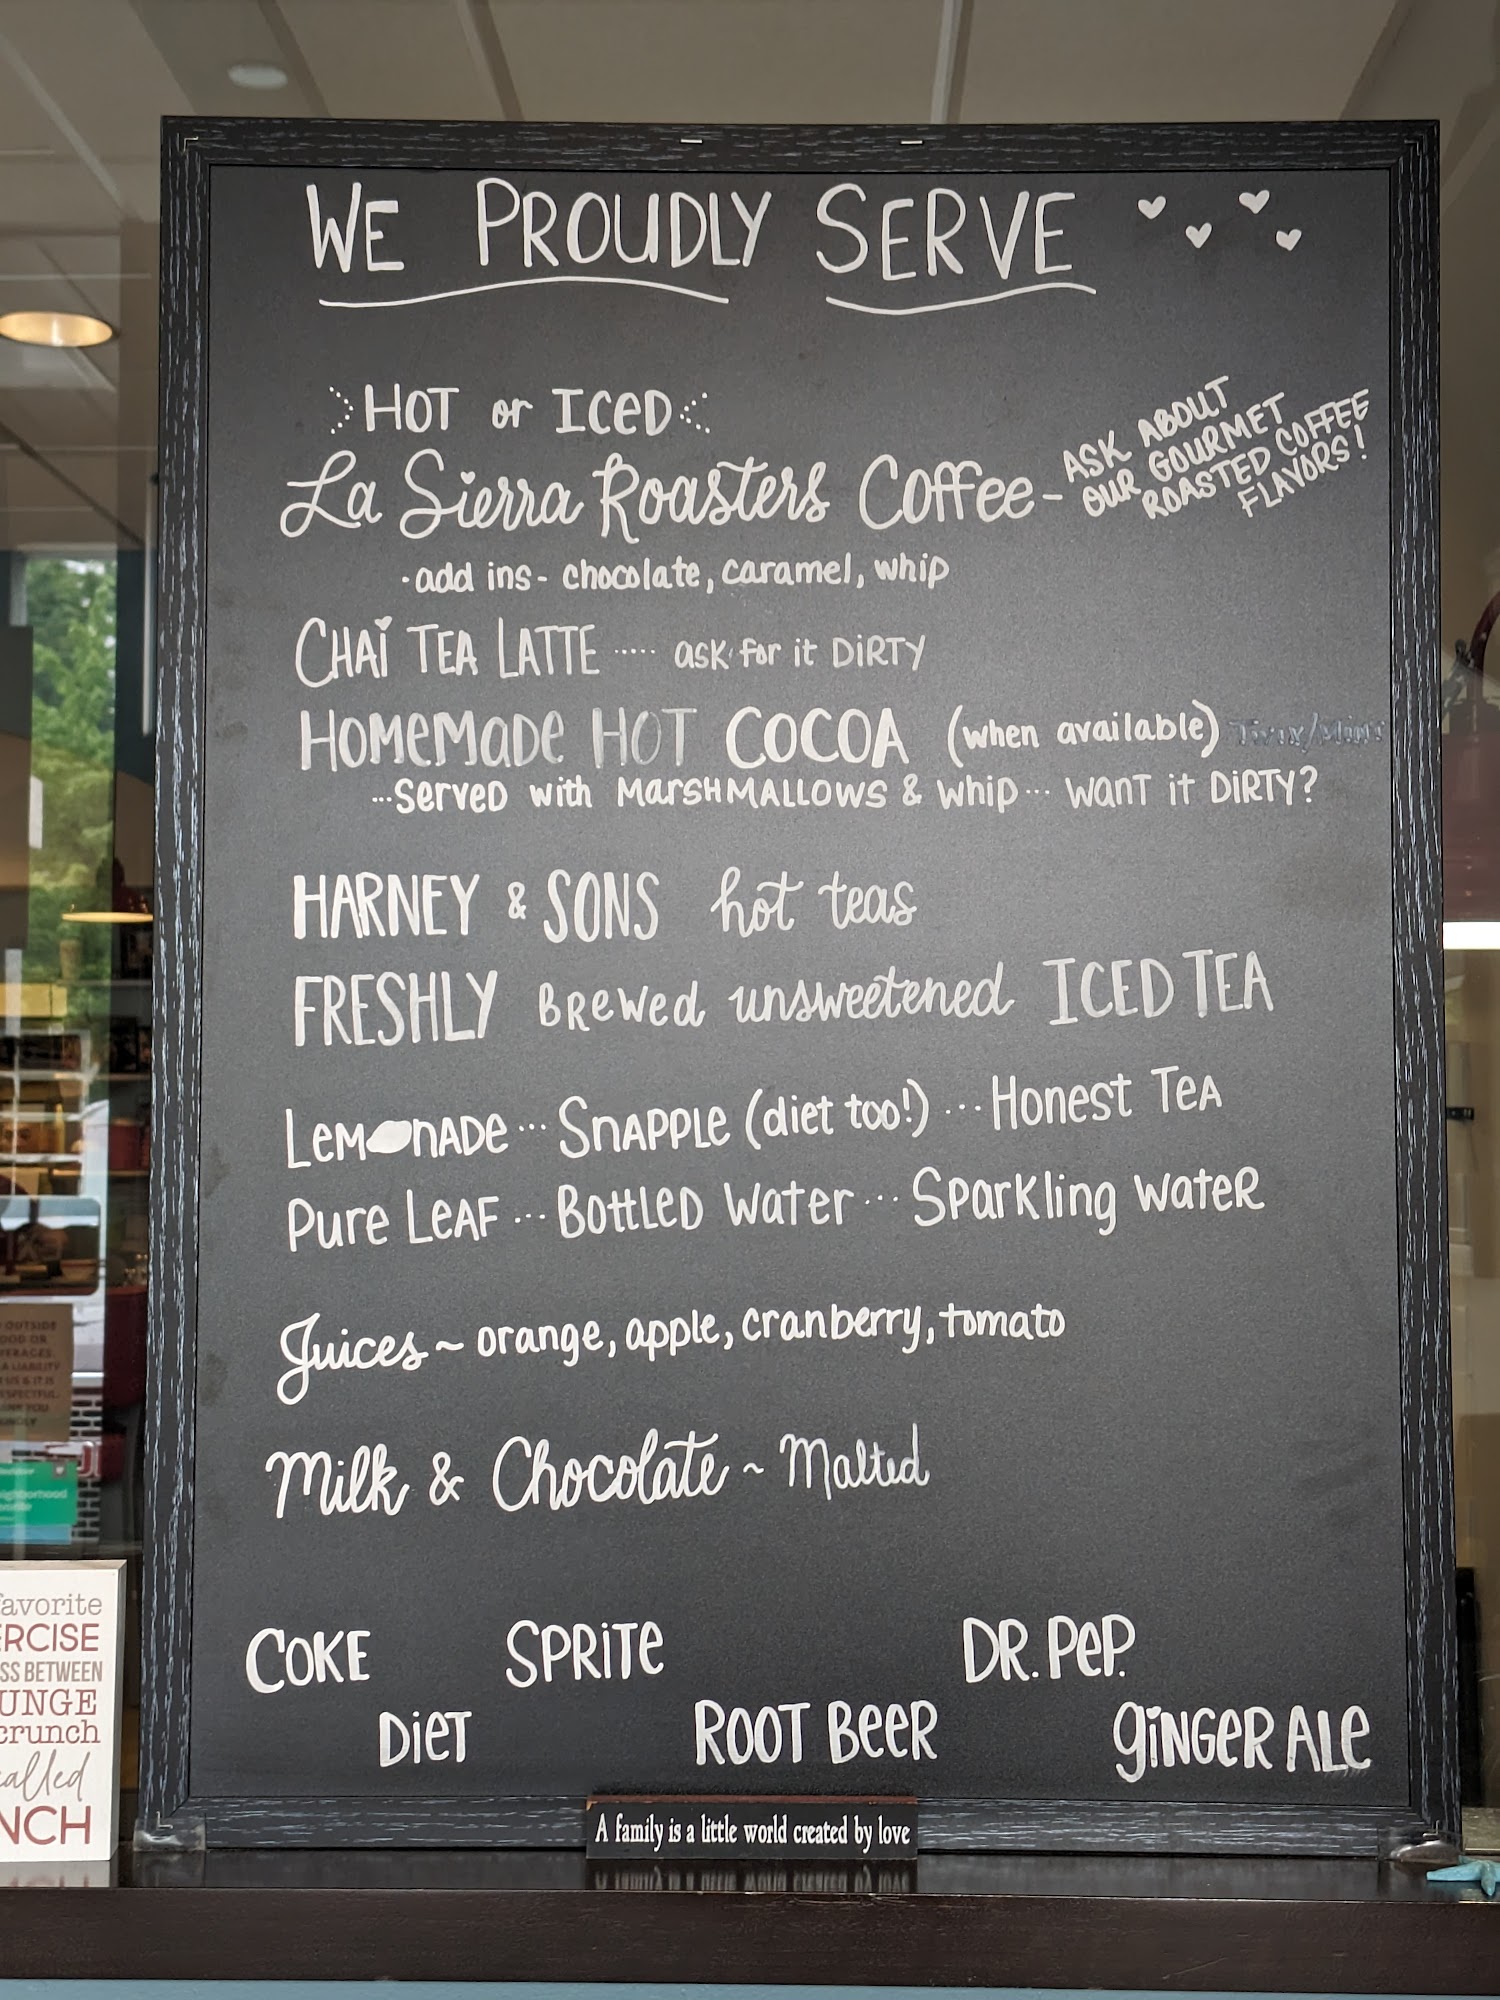 WE PROUDLY SERVE
HOT or ICED
La Sierra Roasters Coffee - ASK ABOUT
OUR GOURMET
ROASTED COFFEE
FLAVORS!
· add ins - chocolate, caramel, whip
CHAI TEA LATTE ····· ask for it DIRTY
HOMEMADE HOT COCOA (when available)
... Served with MARSHMALLOWS & whip ... WANT it DIRTY?
HARNEY & SONS hot teas
FRESHLY BREWED unsweetened ICED TEA
LEMONADE ... SNAPPLE (diet too!) ... HONEST TEA
PURE LEAF ... BOTTLED WATER ... SPARKLING WATER
Juices ~ orange, apple, cranberry, tomato
Milk & Chocolate ~ Malted
COKE SPRITE DR. PEP.
DIET ROOT BEER GINGER ALE
A family is a little world created by love
favorite
BETWEEN
crunch